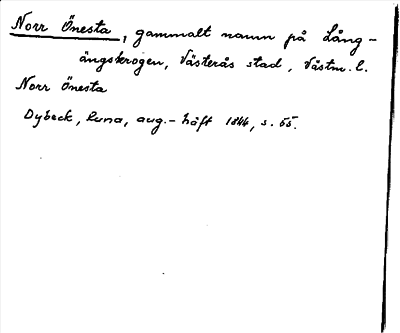 Norr Önesta, gammalt namn på Lång-
ängskrogen, Västerås stad, Västm. l.
Norr Önesta
Dybeck, Runa, aug.-häft 1844, s. 55.